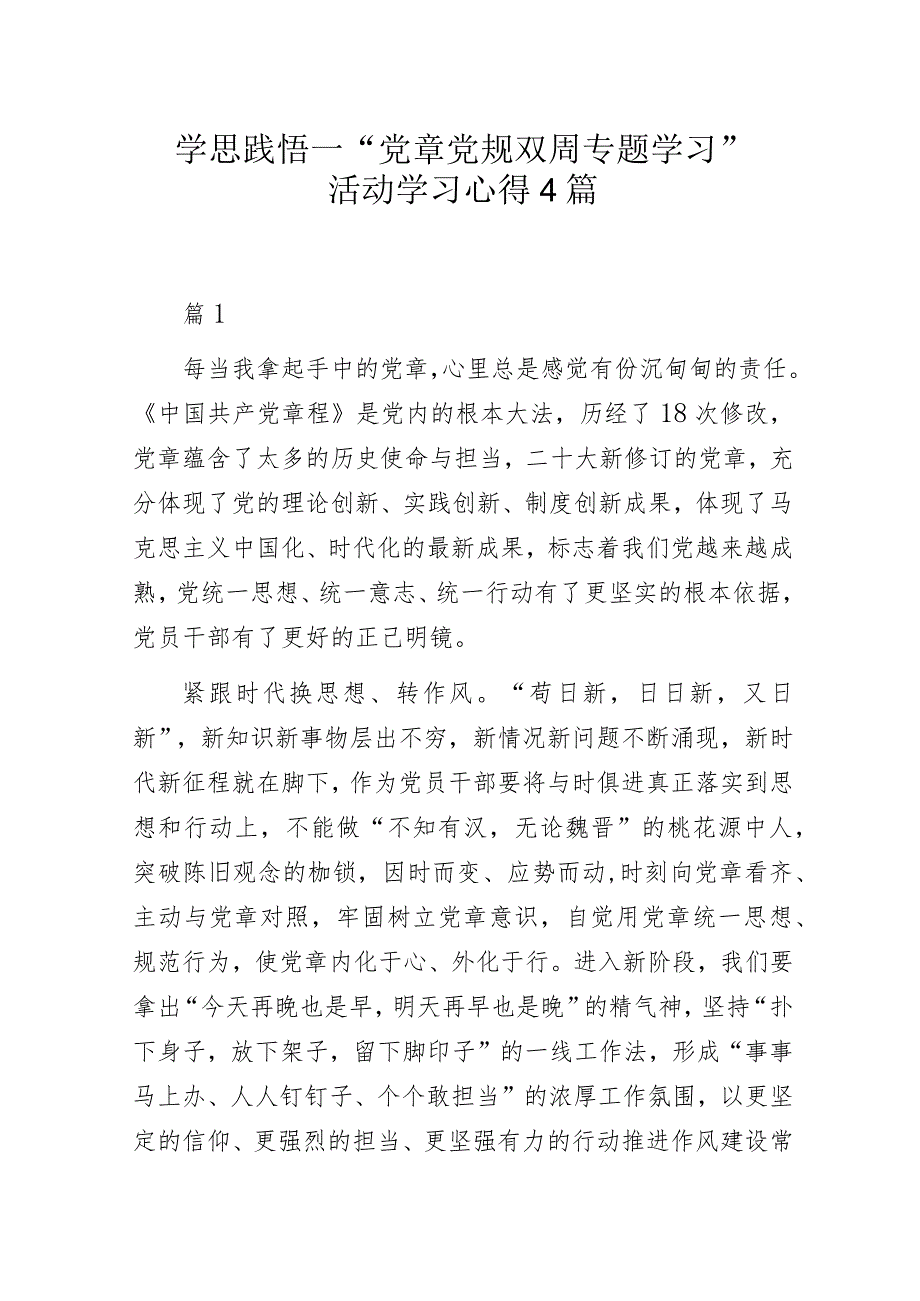 学思践悟一“党章党规双周专题学习”
活动学习心得 4 篇
篇 1
每当我拿起手中的党章,心里总是感觉有份沉甸甸的责任。
《中国共产党章程》是党内的根本大法，历经了 18 次修改，
党章蕴含了太多的历史使命与担当，二十大新修订的党章，充
分体现了党的理论创新、实践创新、制度创新成果，体现了马
克思主义中国化、时代化的最新成果，标志着我们党越来越成
熟，党统一思想、统一意志、统一行动有了更坚实的根本依据，
党员干部有了更好的正己明镜。
紧跟时代换思想、转作风。“苟日新，日日新，又日
新”，新知识新事物层出不穷，新情况新问题不断涌现，新时
代新征程就在脚下，作为党员干部要将与时俱进真正落实到思
想和行动上，不能做“不知有汉，无论魏晋”的桃花源中人，
突破陈旧观念的枷锁，因时而变、应势而动,时刻向党章看齐、
主动与党章对照，牢固树立党章意识，自觉用党章统一思想、
规范行为，使党章内化于心、外化于行。进入新阶段，我们要
拿出“今天再晚也是早，明天再早也是晚”的精气神，坚持“扑
下身子，放下架子，留下脚印子”的一线工作法，形成“事事
马上办、人人钉钉子、个个敢担当”的浓厚工作氛围，以更坚
定的信仰、更强烈的担当、更坚强有力的行动推进作风建设常